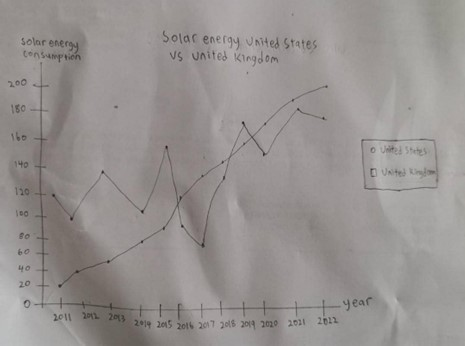 Solar energy United States
vs United Kingdom
solar energy
consumption
200
180
160
140
120
100
80
60
40
20
0
2011 2012 2013 2014 2015 2016 2017 2018 2019 2020 2021 2022
year
United States
United Kingdom